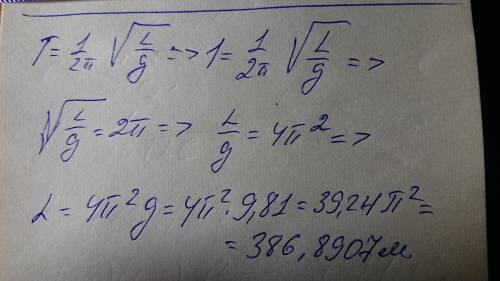 T = 1/2π √(L/g) => 1 = 1/2π √(L/g) =>
√(L/g) = 2π => L/g = 4π² =>
L = 4π²g = 4π²·9,81 = 39,24π² =
= 386,8907м